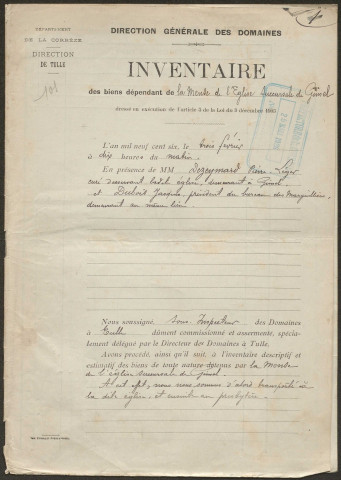 DÉPARTEMENT
DE LA CORRÈZE
DIRECTION
DE TULLE
101
DIRECTION GÉNÉRALE DES DOMAINES
INVENTAIRE
des biens dépendant de la Mense de l'Eglise succursale de Gimel
dressé en exécution de l'article 3 de la Loi du 9 décembre 1905
L'an mil neuf cent six, le trois février
à dix heures du matin.
En présence de MM Dezeymard Pierre-Léger
curé desservant ladite église, demeurant à Gimel
et Dubois Jacques président du bureau des marguilliers,
demeurant au même lieu
Nous soussigné, sous-Inspecteur des Domaines
à Tulle dûment commissionné et assermenté, spécia-
lement délégué par le Directeur des Domaines à Tulle,
Avons procédé, ainsi qu'il suit, à l'inventaire descriptif et
estimatif des biens de toute nature détenus par la Mense
de l'église succursale de Gimel.
A cet effet, nous nous sommes d'abord transporté à
la dite église, et ensuite au presbytère.